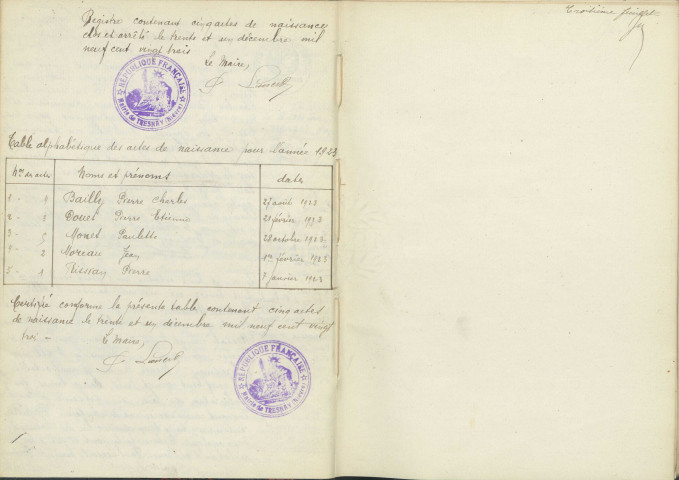 Registre contenant cinq actes de naissance
clos et arrêté le trente et un décembre mil
neuf cent vingt trois
Le Maire,
RÉPUBLIQUE FRANÇAISE
Mairie de TRESNAY (Nièvre)
Table alphabétique des actes de naissance pour l'année 1923
Nos des actes Noms et prénoms dates
1 - Bailly Pierre Charles 27 août 1923
2 - Douet Pierre Etienne 21 février 1923
3 - 5 Monet Paulette 28 octobre 1923
4 - 2 Moreau Jean 1er février 1923
5 - 1 Pierre 7 janvier 1923
Certifié conforme la présente table contenant cinq actes
de naissance le trente et un décembre mil neuf cent vingt
troi -
Le Maire,
RÉPUBLIQUE FRANÇAISE
Mairie de TRESNAY (Nièvre)
Troisième feuillet